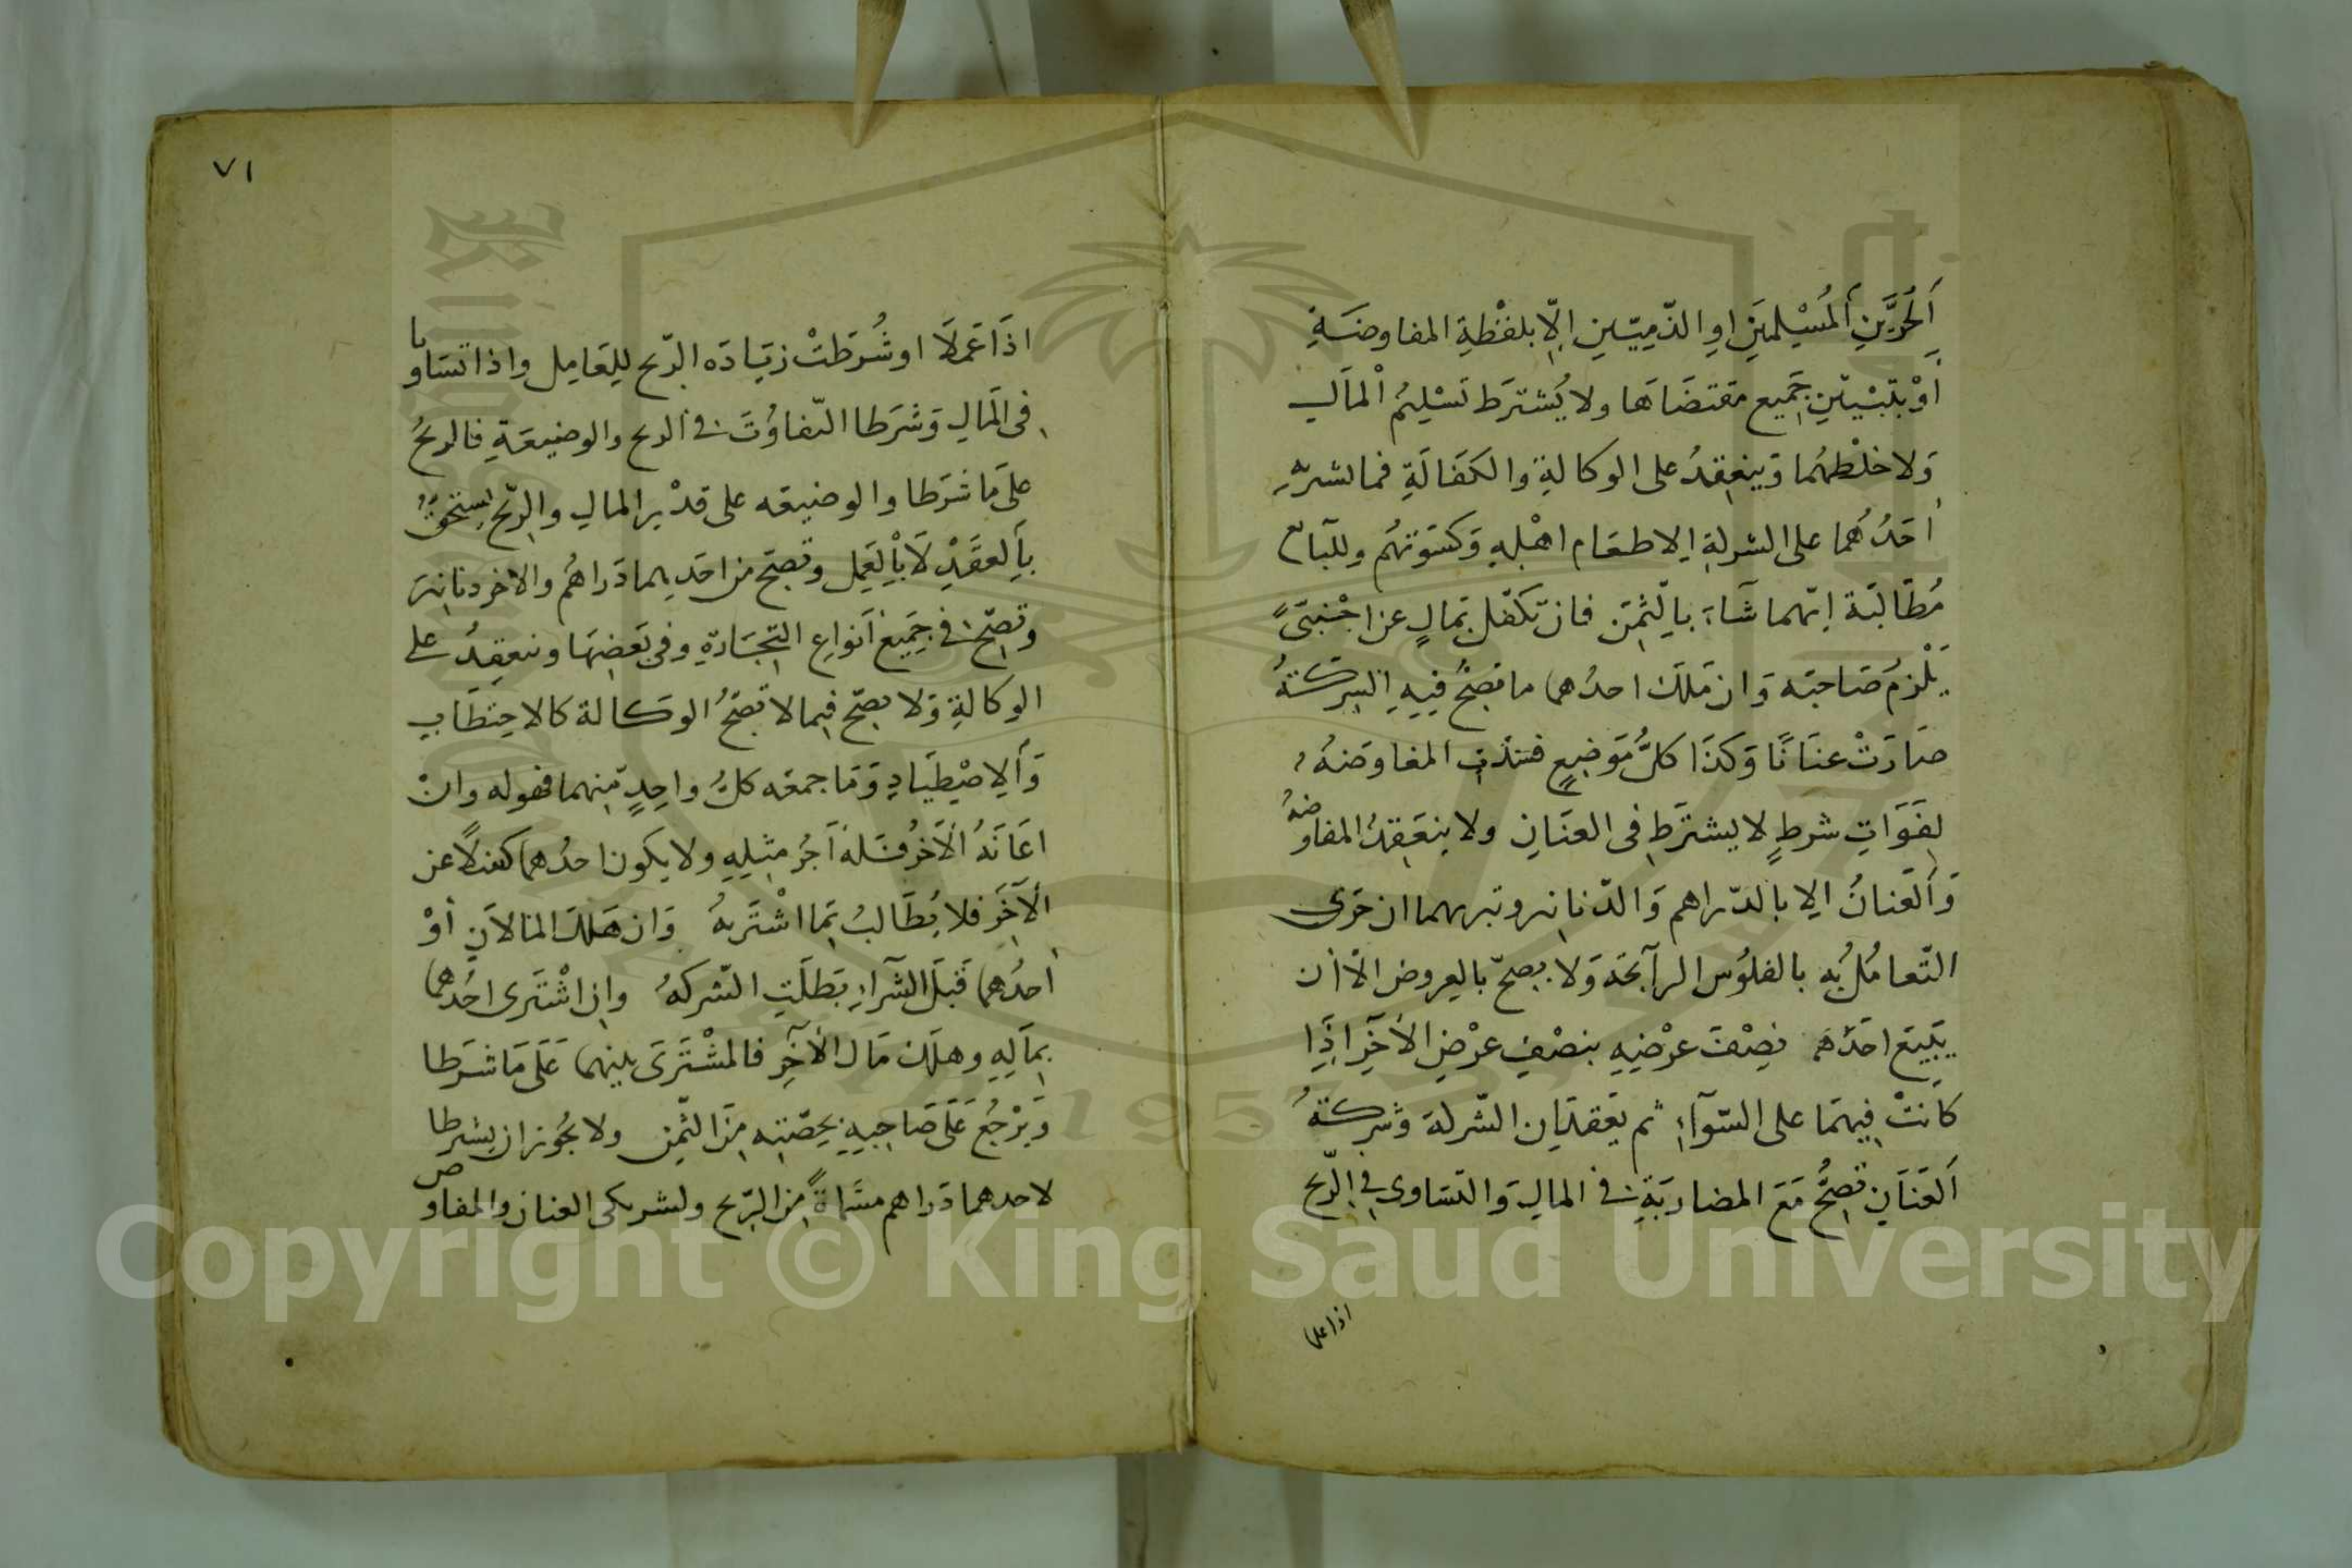 اَلحُرَّيْنِ اَلمُسْلِمَيْنِ اوِ الذّمِيّيْنِ اِلّا بلفْظةِ المفاوضَةِ
اَوْ بتَبْيينِ جَميع مقتضَاهَا ولا يُشترَط تَسْليمُ اْلماَلِ
وَلا خلْطهُما وَينعقِدُ على الوكالةِ والكَفَالَةِ فما يشتريهِ
اَحَدُهُما على الشركةِ الا طعَام اهْلِهِ وَكسْوَتهُم وللبآئع
مُطَالبَة اَيّهما شَآءَ بالثمَن فان تكفّل بمَالٍ عن اجْنَبىّ
يَلْزمُ صَاحبَه وَان مَلكَ احدُهما ما تصِحُّ فيهِ الشركَةُ
صَارَتْ عنَانًا وَكذَا كلُّ مَوَضِعٍ فسَدَتِ المفاوَضَهُ
لِفَوَاتِ شرطٍ لا يشترَط فى العنَانِ ولا ينعَقِدُ المفاوضهُ
وَاَلعَنانُ الِا بالدّراهم وَالدّنانير وتبرهما ان جَرى
التّعامُلُ بِه بالفلوُس الرآبحَه وَلا يصِحّ بالعروض الّا اَن
يَبيعَ احَدُهما نِصْفَ عرْضِهِ بنصْفِ عرْضِ الآخَرِ اِذَا
كانَتْ فيهمَا على السّوَآءِ ثم يَعقدَانِ الشّركة وشركَةُ
اَلعَنَانِ تصِحُّ مَعَ المضاربَةِ فى المالِ وَالتسَاوى فِى الِرّبح
اذا عملا
٧١
اذَا عَمَلَا او شُرطَتْ زيَادَه الرّبح للِعَامِل واذا تسَاويا
فى المَالِ وَشَرَطا التّفاوُتَ فى الربح والوضيعَةِ فالربحُ
علَى مَا شَرطا والوضيعَه على قدْر المالِ والرّبح يستحَقُّ
بِاَلعقَدِْ لَا بِاْلعَمِل وتصِحّ من احَدِهما دَراهُم والاخر دنانير
وتصِحّ فى جَمِيع اَنواعِ التِّجَارَةِ وفى بَعضِهَا وينعقِدُ على
الوكالةِ وَلا يصِحّ فيما لا تصِحُّ الوَكالة كالاحتطَابِ
وَاَلِاصْطِيَادِ وَمَا جمعَه كلُّ واحِدٍ مِنهما فهو له وانْ
اعَانَهُ الْاَخرُ فَلَهُ اَجْرُ مثِلِهِ ولا يكون احدُهما كفيلًا عن
الْآخَرِ فلا يُطَالبُ بمَا اشْتَرَيهُ وَان هَلكَ المالاَنِ اَوْ
احدُهما قَبْلَ الشّرآءِ بَطَلَتِ الشّركهُ وانِ اشْتَرى احُدهما
بمِاَلهِ وهلَكَ مَال الْآخَرِ فالمشْتَرَى بينهما عَلَى مَا شرَطا
وَيرْجُعُ عَلَى صَاحِبِهِ بحِصّتِهِ مِنَ الثمِنِ ولا يجُوز ان يشرطا
لاحدهما دَراهم مسَمّاةً مِن الرّبح ولشريكى العنان والمفاوض